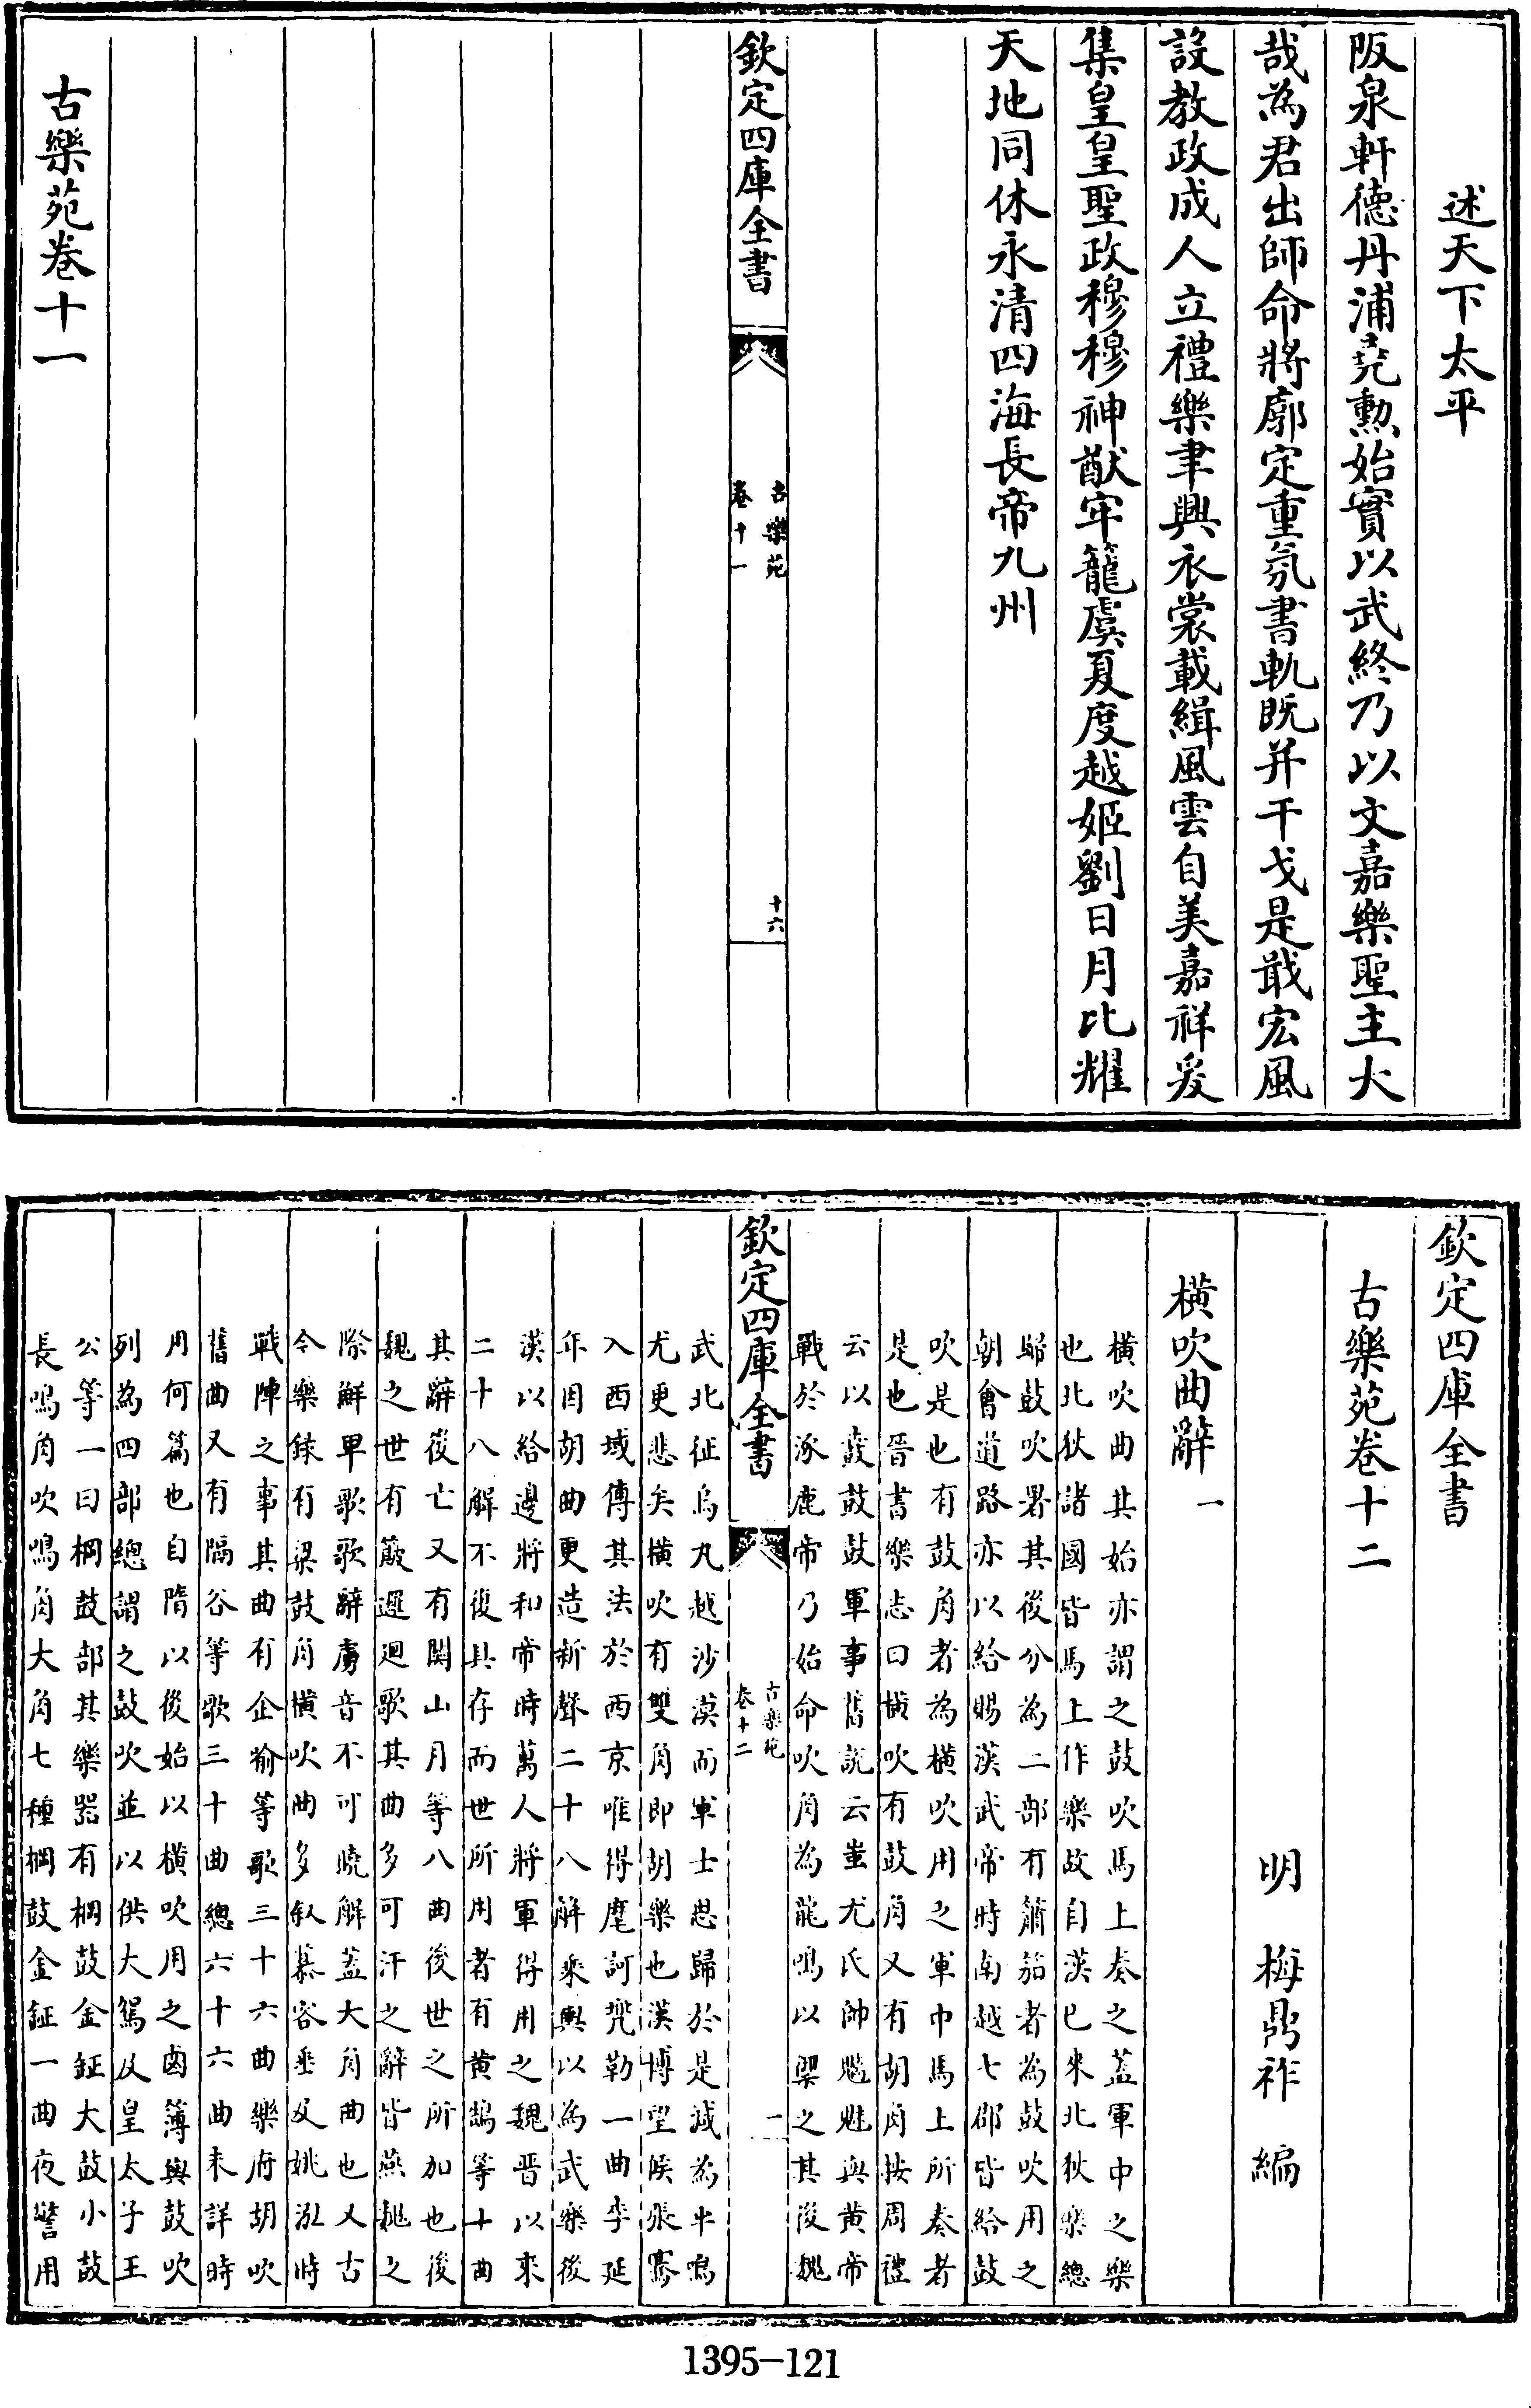 述天下太平
阪泉軒德丹浦堯勲始實以武終乃以文嘉樂聖主大
哉為君出師命將廓定重氛書軌既并干戈是戢宏風
設教政成人立禮樂聿興衣裳載緝風雲自美嘉祥爰
集皇皇聖政穆穆神猷牢籠虞夏度越姬劉日月比耀
天地同休永清四海長帝九州
欽定四庫全書
古樂苑
卷十一
十六
古樂苑卷十一
欽定四庫全書
古樂苑卷十二
明 梅鼎祚 編
橫吹曲辭 一
橫吹曲其始亦謂之鼓吹馬上奏之葢軍中之樂
也北狄諸國皆馬上作樂故自漢已來北狄樂總
歸鼓吹署其後分為二部有簫笳者為鼓吹用之
朝會道路亦以給賜漢武帝時南越七郡皆給鼓
吹是也有鼓角者為橫吹用之軍中馬上所奏者
是也晉書樂志曰橫吹有鼓角又有胡角按周禮
云以鼖鼓鼓軍事舊說云蚩尤氏帥魑魅與黃帝
戰於涿鹿帝乃始命吹角為龍鳴以禦之其後魏
欽定四庫全書
古樂苑
卷十二
一
武北征烏丸越沙漠而軍士思歸於是減為半鳴
尤更悲矣橫吹有雙角即胡樂也漢博望侯張騫
入西域傳其法於西京唯得摩訶兜勒一曲李延
年因胡曲更造新聲二十八解乘輿以為武樂後
漢以給邊將和帝時萬人將軍得用之魏晉以來
二十八解不復具存而世所用者有黃鵠等十曲
其辭後亡又有關山月等八曲後世之所加也後
魏之世有簸邏迴歌其曲多可汗之辭皆燕魏之
際鮮卑歌歌辭虜音不可曉解葢大角曲也又古
今樂錄有梁鼓角橫吹曲多叙慕容垂及姚泓時
戰陣之事其曲有企喻等歌三十六曲樂府胡吹
舊曲又有隔谷等歌三十曲總六十六曲未詳時
用何篇也自隋以後始以橫吹用之鹵簿與鼓吹
列為四部總謂之鼓吹並以供大駕及皇太子王
公等一曰棡鼓部其樂器有棡鼓金鉦大鼓小鼓
長鳴角吹鳴角大角七種棡鼓金鉦一曲夜警用
1395-121